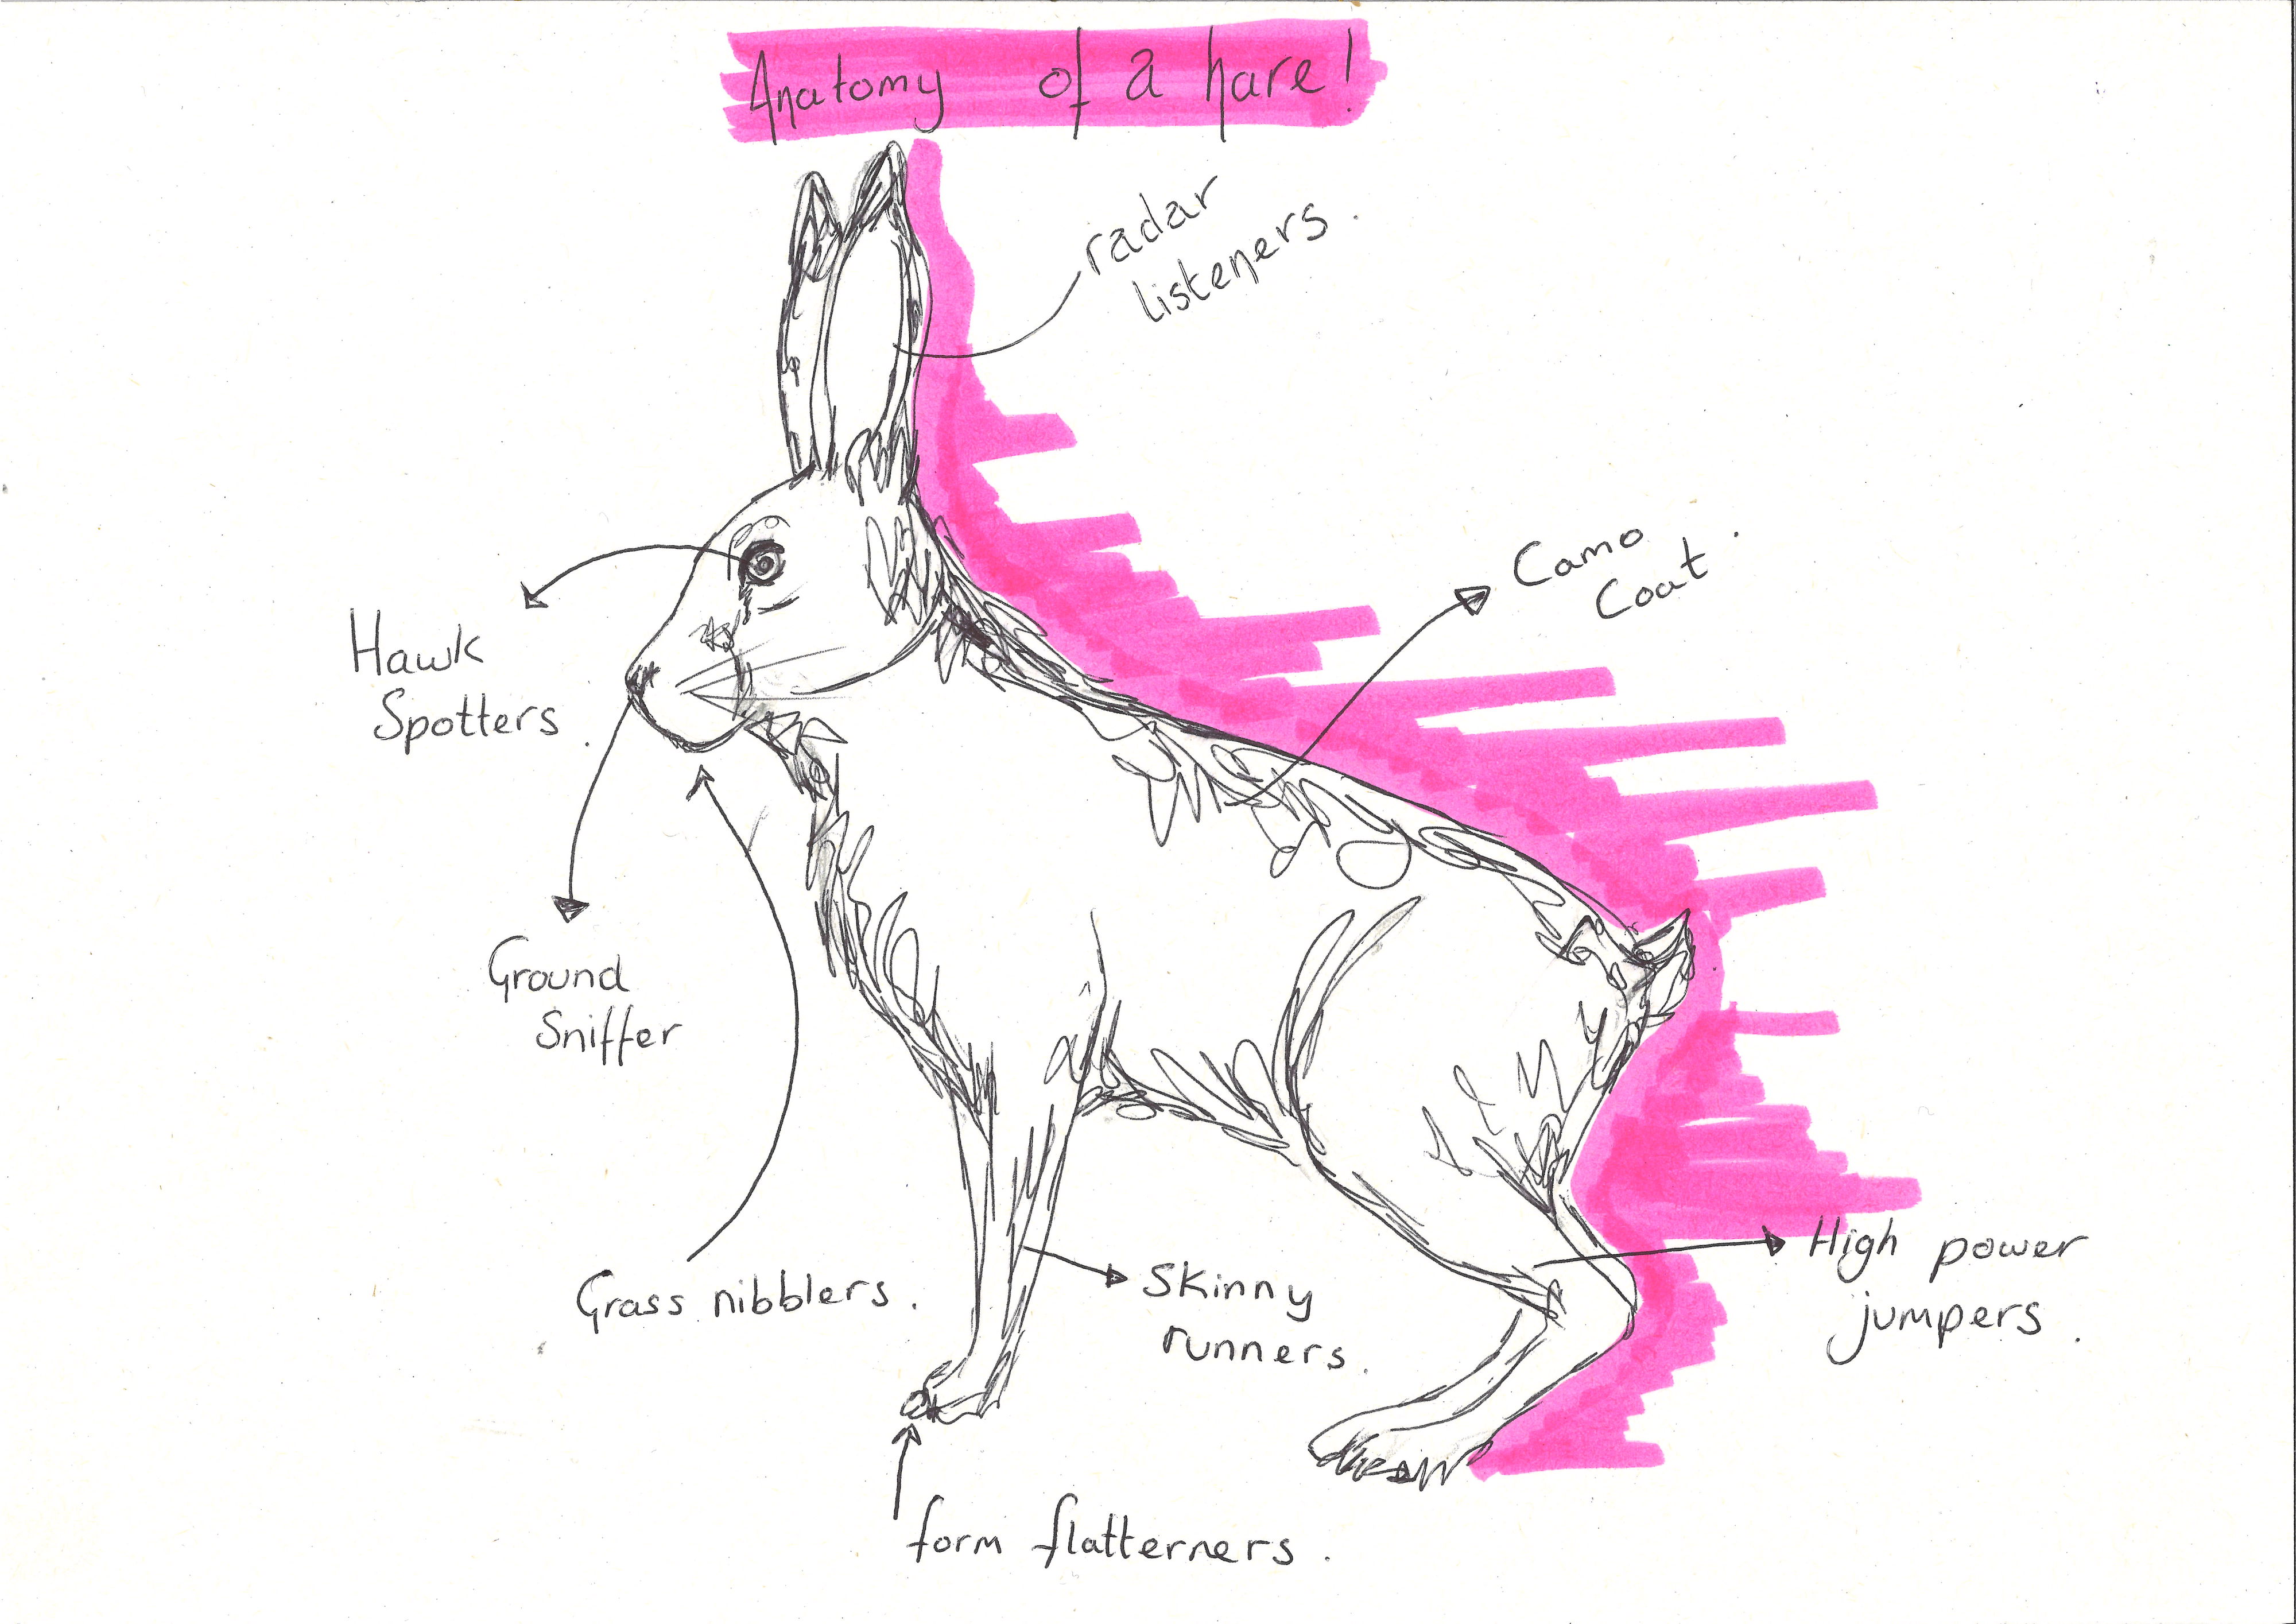 Anatomy of a hare!
radar
listeners.
Camo
Coat.
Hawk
Spotters.
Ground
Sniffer
Grass nibblers.
Skinny
runners.
High power
jumpers.
form flatterners.